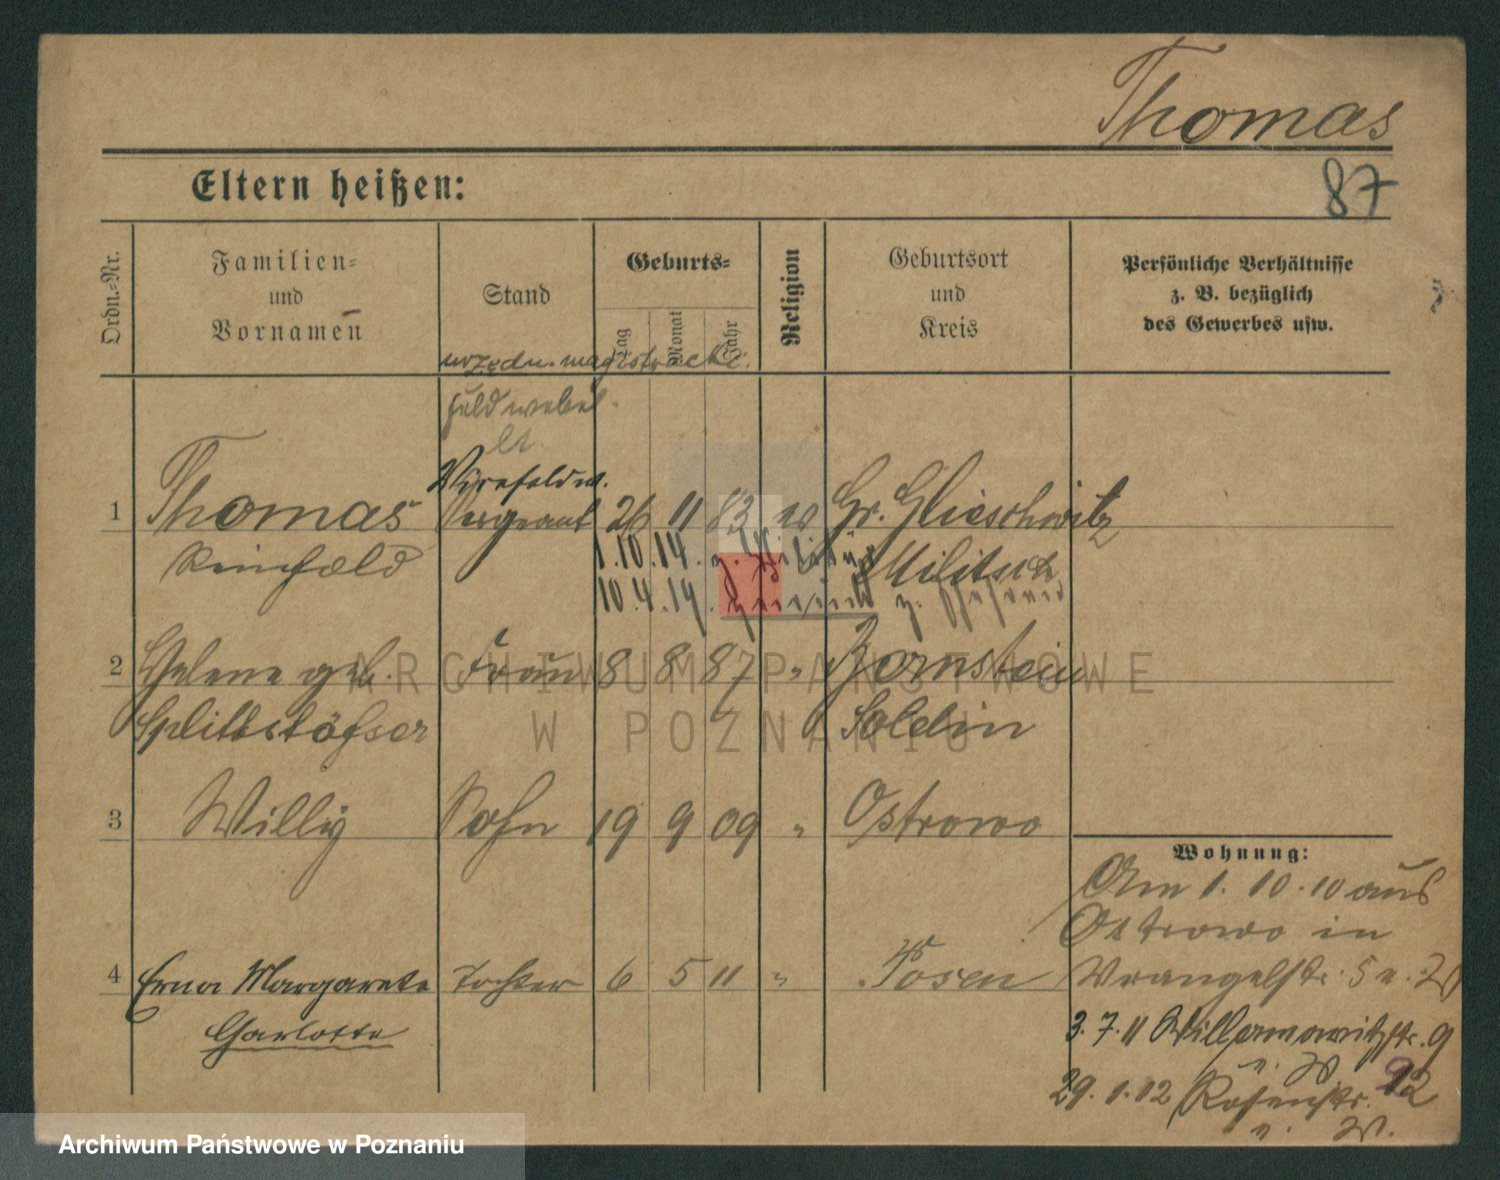 Thomas
87
Eltern heißen:
Ordn.-Nr.
Familien-
und
Vornamen
Stand
Geburts-
Tag
Monat
Jahr
Religion
Geburtsort
und
Kreis
Persönliche Verhältnisse
z. B. bezüglich
des Gewerbes usw.
urzędn. magistracki.
Feldwebel
lt.
Vizefeldw.
1 Thomas Sergeant 26 11 83 Gr. Glieschwitz
Reinhold
1.10.14. z. Militär
Militsch
10.4.19. z.
2 Helene geb. Frau 8 8 87 " Bernstein
Splittstößer Soldin
3 Willy Sohn 19 9 09 " Ostrowo
Wohnung:
Am 1. 10. 10 aus
Ostrowo in
4 Erna Margarete Tochter 6 5 11 " Posen
Wrangelstr. 5 n. W
Charlotte
3. 7. 11 Willamowitzstr. 9
n. W
29. 1. 12 92
n. W.
ARCHIWUM PAŃSTWOWE
W POZNANIU
Archiwum Państwowe w Poznaniu